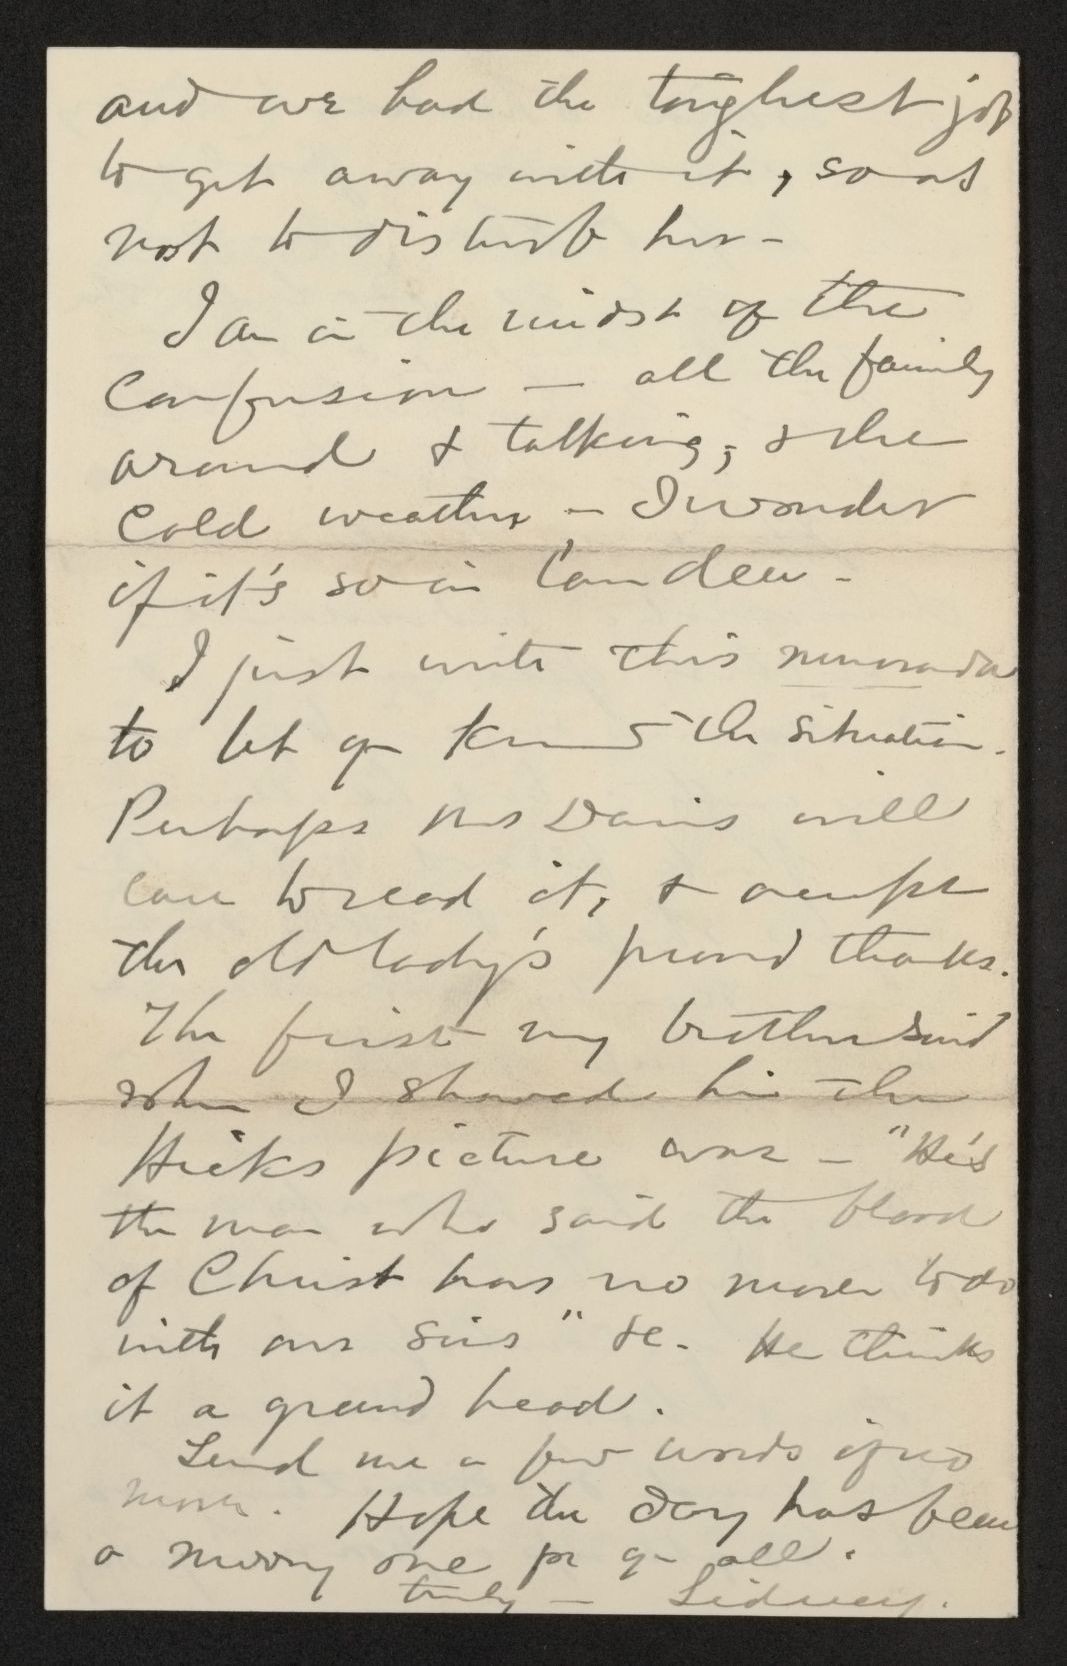 and we had the toughest job
to get away with it, so as
not to disturb her -
I am in the midst of the
Confusion — all the family
around & talking; & the
Cold weather, — I wonder
if it's so in Camden -
I just write this memorada
to let you know the situation.
Perhaps Mrs Davis will
care to read it, & accept
the old lady's proud thanks.
The first my brother said
when I showed him the
Hicks picture was — "He's
the man who said the blood
of Christ has no more to do
with our sins" &c. He thinks
it a grand head.
Send me a few words if no
more. Hope the day has been
a merry one for you all.
truly — Sidney.